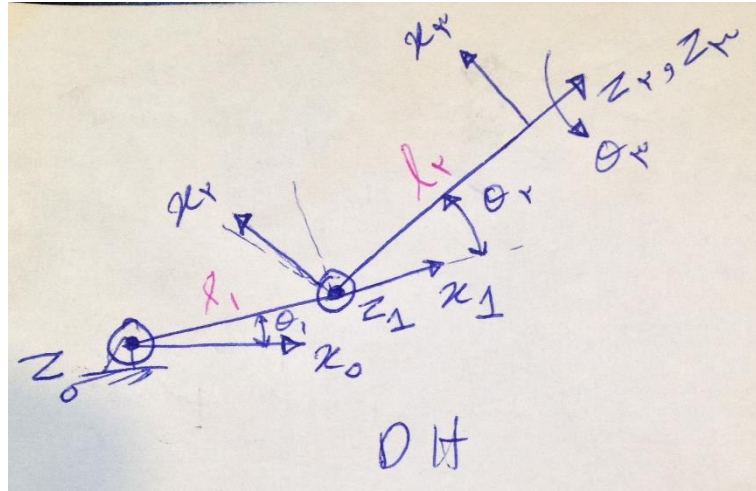 x۳
z۲, z۳
θ۳
l۲
θ۲
x۲
l۱
θ۱
z1
x1
z0
x0
DH